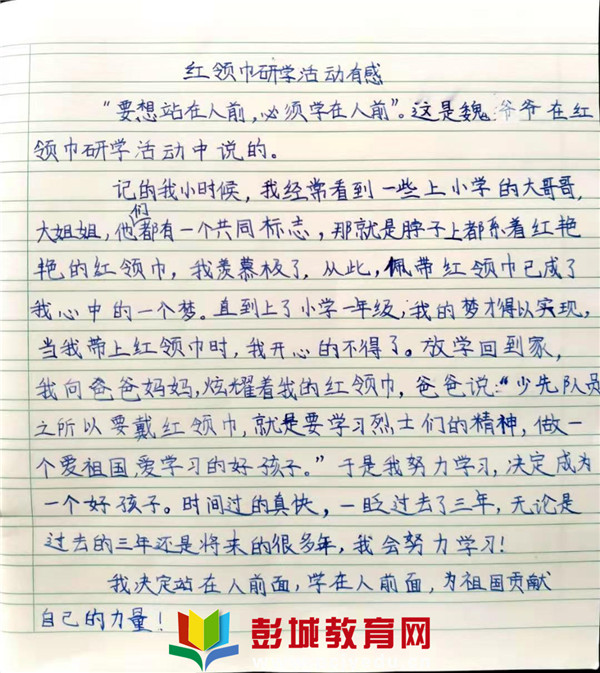 红领巾研学活动有感
“要想站在人前，必须学在人前”。这是魏爷爷在红
领巾研学活动中说的。
记的我小时候，我经常看到一些上小学的大哥哥，
大姐姐，他们都有一个共同标志，那就是脖子上都系着红艳
艳的红领巾，我羡慕极了，从此，佩带红领巾已成了
我心中的一个梦。直到上了小学一年级，我的梦才得以实现，
当我带上红领巾时，我开心的不得了。放学回到家，
我向爸爸妈妈，炫耀着我的红领巾，爸爸说：“少先队员
之所以要戴红领巾，就是要学习烈士们的精神，做一
个爱祖国，爱学习的好孩子。”于是我努力学习，决定成为
一个好孩子。时间过的真快，一眨过去了三年，无论是
过去的三年还是将来的很多年，我会努力学习！
我决定站在人前面，学在人前面，为祖国贡献
自己的力量！
彭城教育网